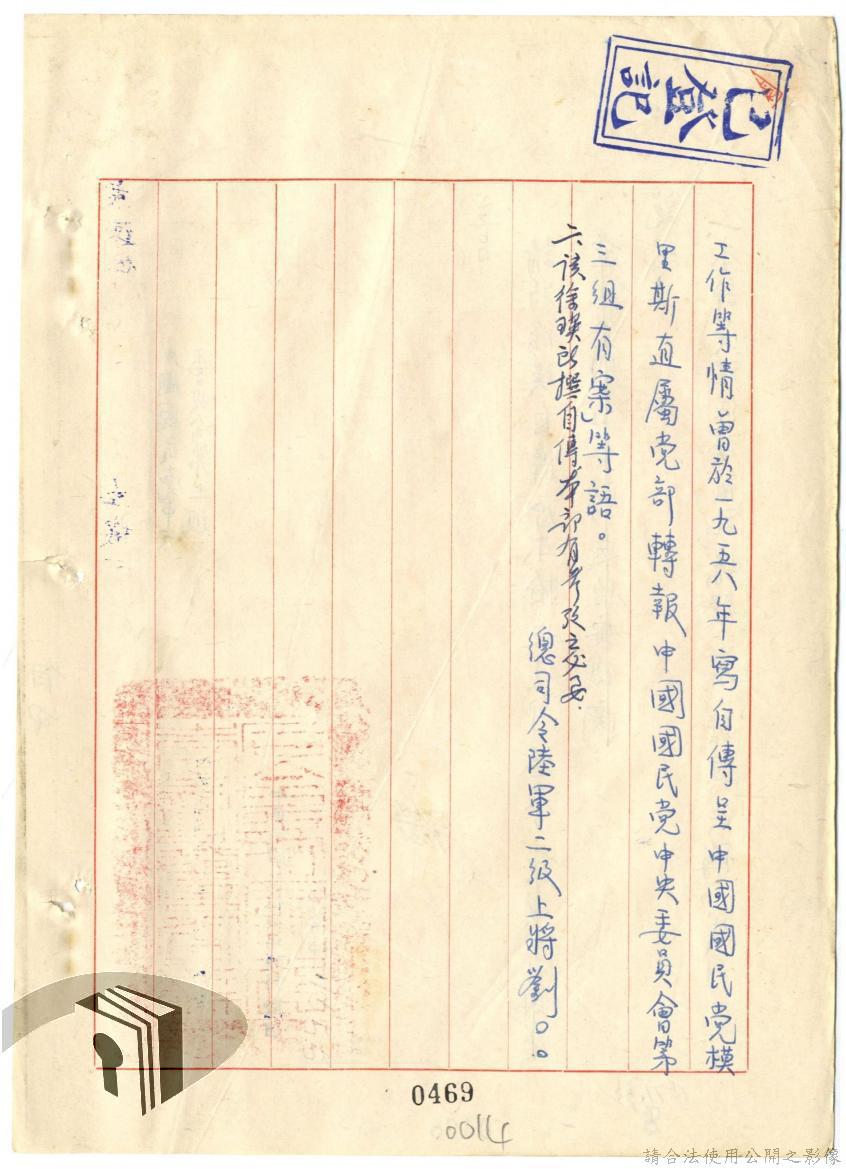 已登記
工作等情曾於一九五八年寫自傳呈中國國民党模
里斯直屬党部轉報中國國民党中央委員會第
三組有案」等語。
六、該徐瑛所撰自傳本部有
總司令陸軍二級上將劉○○
0469
請合法使用公開之影像